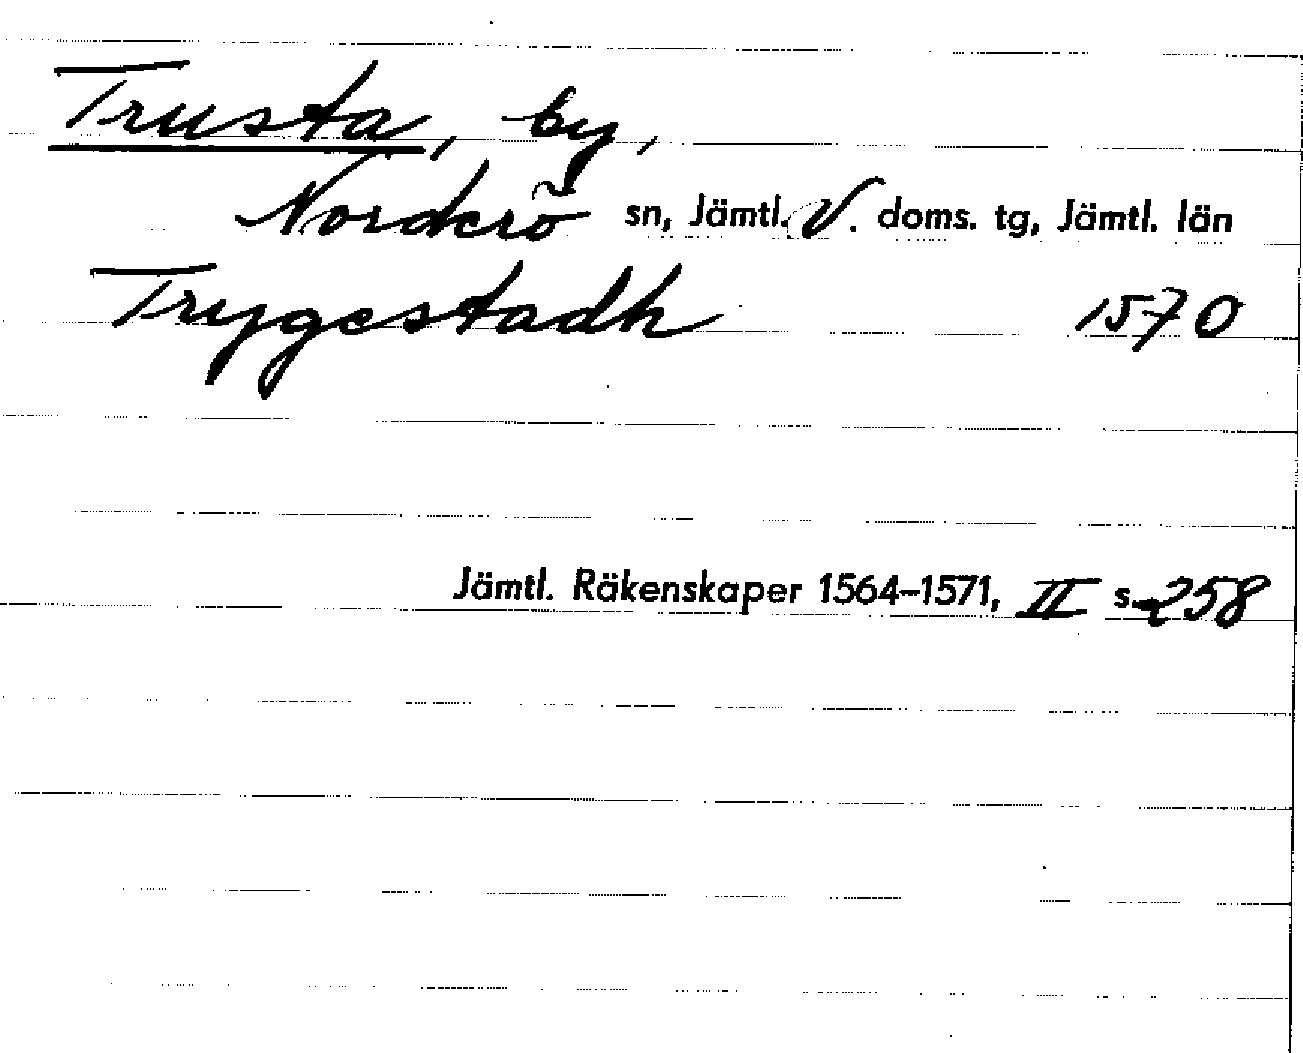 Trusta, by,
Norderö sn, Jämtl. V. doms. tg, Jämtl. län
Trygestadh 1570
Jämtl. Räkenskaper 1564–1571, II s. 258